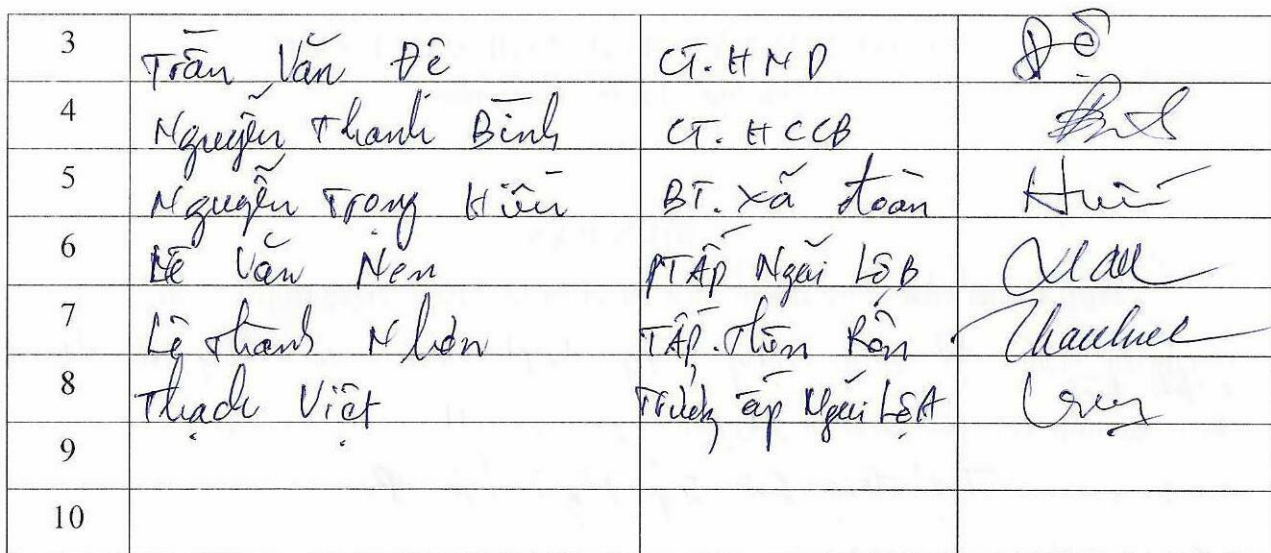 3 Trần Văn Đê CT. HND Đê
4 Nguyễn Thanh Bình CT. HCCB
5 Nguyễn Trọng Hiếu BT. xã đoàn Hiếu
6 Lê Văn Nen PTẤp Ngãi Lộ B
7 Lê Thanh Nhàn TẤP.
8 Thạch Việt Trưởng ấp Ngãi Lộ A
9
10